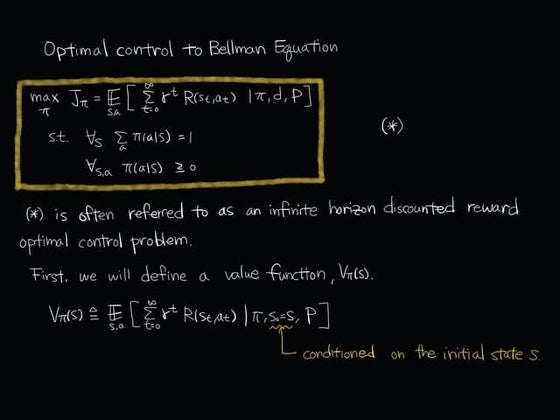 Optimal control to Bellman Equation
max_π J_π = 𝔼_{s,a} [ ∑_{t=0}^{∞} γ^t R(s_t, a_t) | π, d, P ]
s.t. ∀_s ∑_a π(a|s) = 1
(*)
∀_{s,a} π(a|s) ≥ 0
(*) is often referred to as an infinite horizon discounted reward
optimal control problem.
First, we will define a value function, V_π(s).
V_π(s) ≙ 𝔼_{s,a} [ ∑_{t=0}^{∞} γ^t R(s_t, a_t) | π, s_0=s, P ]
conditioned on the initial state s.